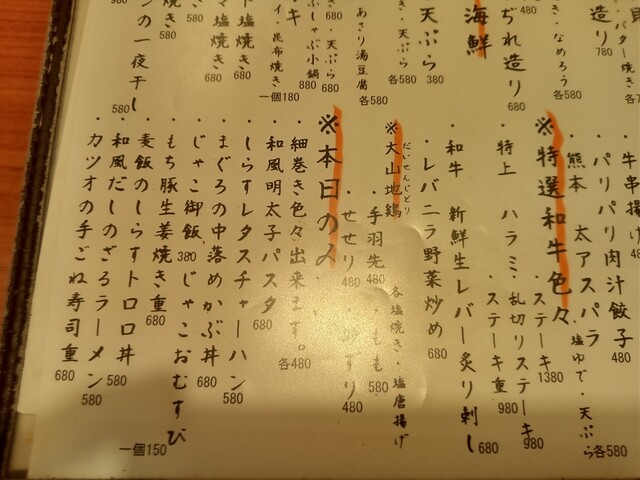 造り
780
バター焼き
ぢれ造り
680
なめろう
各580
480
海鮮
天ぷら
380
天ぷら
各580
680
・天ぷら
580
あさり湯豆腐
各580
ぶしゃぶ小鍋
880
・昆布焼き
一個180
塩焼き
680
塩焼き
680
焼き
580
ンの一夜干し
580
牛串揚げ
・パリパリ肉汁餃子
480
・熊本 太アスパラ
塩ゆで・天ぷら
各580
※特選和牛色々
・ステーキ
1380
・乱切りステーキ
980
・ステーキ重
980
・特上 ハラミ
・和牛 新鮮生レバー炙り刺し
680
・レバニラ野菜炒め
680
※大山地鶏
だいせんじどり
各塩焼き・塩唐揚げ
・手羽先
480
・もも
580
・せせり
480
480
※本日の〆
・細巻き色々出来ます。
各480
・和風明太子パスタ
680
・しらすレタスチャーハン
580
・まぐろの中落めかぶ丼
680
・じゃこ御飯
380
・じゃこおむすび
一個150
・もち豚生姜焼き重
680
・麦飯のしらすトロロ丼
580
・和風だしのざるラーメン
580
・カツオの手ごね寿司重
680